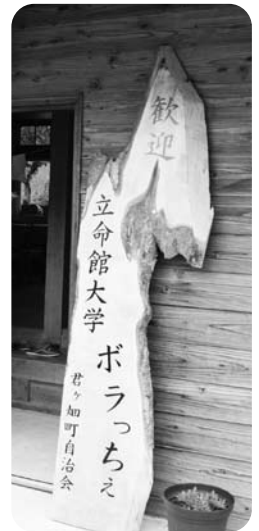 歓迎
立命館大学
ボラっちぇ
君ヶ畑町自治会